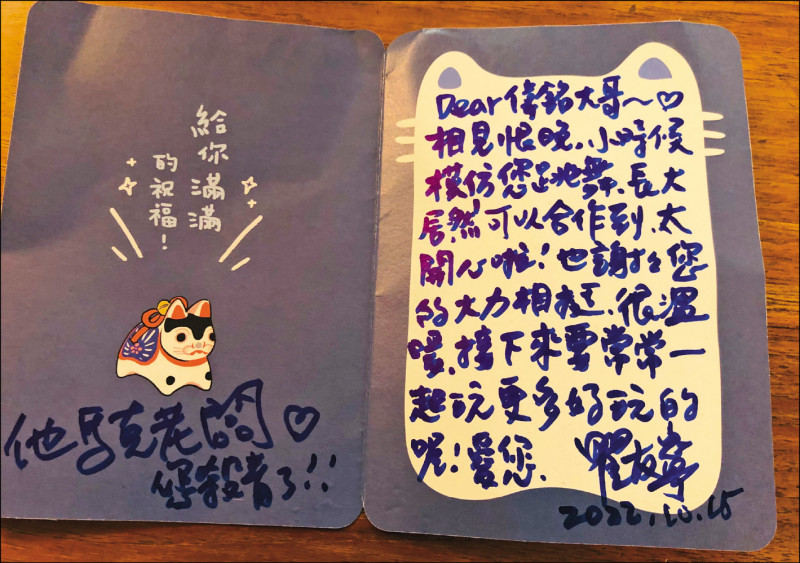 給你滿滿
的祝福!
他馬克老闆♡
您殺青了!!
Dear 偉銘大哥~♡
相見恨晚、小時候
模仿您跳舞、長大
居然可以合作到、太
開心啦!也謝々您
的大力相挺、很溫
暖、接下來要常常一
起玩更多好玩的
呢!愛您、瞿友寧
2022.10.15